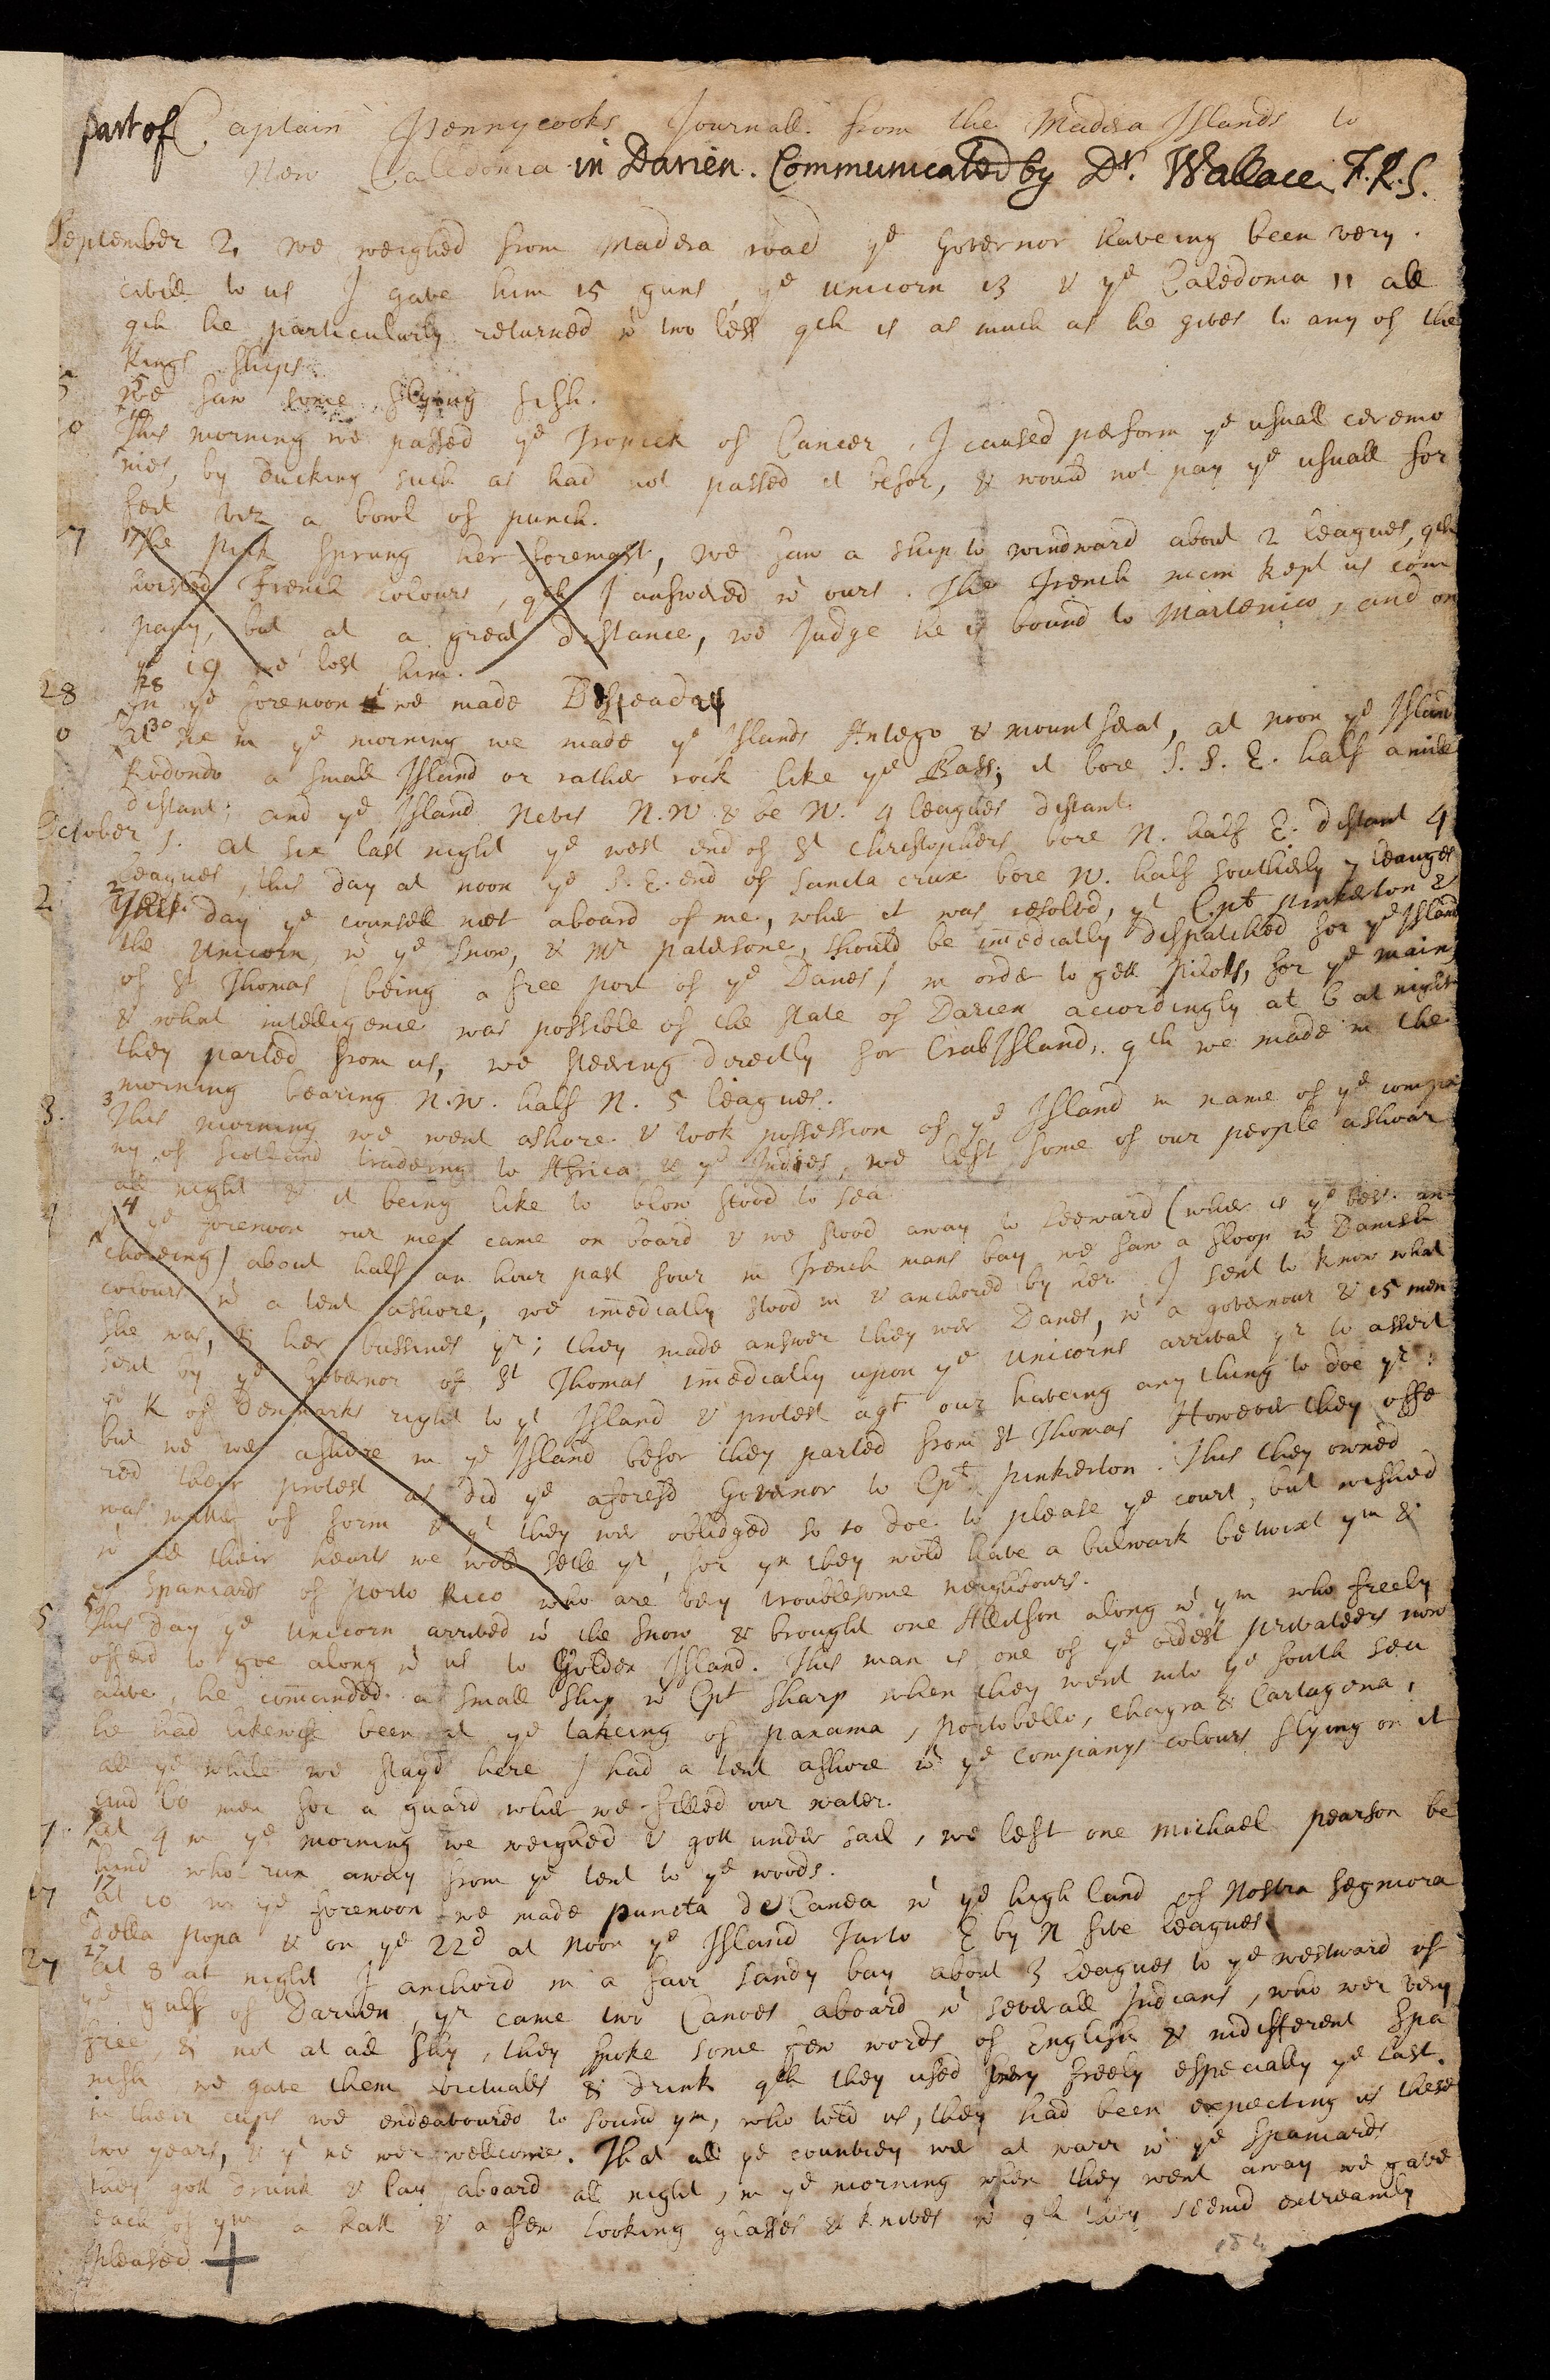 part of Captain Pennycooks Journall from the Madera Islands to
New Caledonia in Darien. Communicated by Dr. Wallace, F.R.S.
September 2. we weighed from Madera road ye Governor haveing been very
civill to us I gave him 15 guns, ye Unicorn 13 & ye Caledonia 11 all
qch he particularly returned wt two less qch is as much as he gives to any of the
Kings ships.
5 5 we saw some flying fish.
0 10 This morning we passed ye Tropick of Cancer, I caused perform ye usuall ceremo
nies, by ducking such as had not passed it befor, & would not pay ye usuall for
feit viz a bowl of punch.
17 17 The pink sprung her foremast, we saw a ship to windward about 2 leagues, qch
hoisted French colours, qch I answered wt ours. The French man kept us com
pany, but at a great distance, we Judge he is bound to Martenico, and on
ye 19 we lost him.
28 28 In ye forenoon we made
0 30 at six in ye morning we made ye Islands Antego & mountserat, at noon ye Island
Rodondo a small Island or rather rock like ye Bass; it bore S. S. E. half a mile
distant. and ye Island Nevis N.W & be W. 4 leagues distant.
October 1. at six last night ye west end of St Christophers bore N. half E. distant 4
leagues, this day at noon ye S. E. end of Sancta crux bore W. half southerly 7 leauges
2. 2 This day ye counsell met aboard of me, wher it was resolvd, yt Cpt pinkerton &
the Unicorn, wt ye snow, & Mr patersone, should be imediatly dispatched for ye Island
of St Thomas (being a free port of ye Danes) in order to gett pilots, for ye main,
& what intelligence was possible of the state of Darien accordingly at 6 at night
they parted from us, we steering directly for Crab Island, qch we made in the
morning bearing N.W. half N. 5 leagues.
3. 3 This morning we went ashore & took possession of ye Island in name of ye compa
ny of scotland tradeing to Africa & ye Indies, we left some of our people ashoar
all night & it being like to blow stood to sea
4 4 In ye forenoon our men came on board & we stood away to Leeward (wher is ye best an
choreing) about half an hour past four in French mans bay we saw a sloop wt Danish
colours wt a tent ashore, we imediatly stood in & anchored by her. I sent to know what
she was, & her bussines yr; they made answer they wer Danes, wt a governour & 15 men
sent by ye Governor of St Thomas imediatly upon ye Unicorns arrival yr to assert
ye K of Denmarks right to yt Island & protest agt our haveing any thing to doe yr:
but we wer ashore in ye Island befor they parted from St Thomas However they offe
red their protest as did ye aforesd Governor to Cpt pinkerton. This they owned
was matter of form & yt they wer oblidged so to doe to please ye court, but wished
wt all their hearts we wold setle yr, for yn they wold have a bulwark betwixt ym &
ye Spaniards of porto Rico who are very troublesome neighbours.
5 5 This day ye Unicorn arrived wt the snow & brought one Allitson along wt ym who freely
offerd to goe along wt us to Golden Island. This man is one of ye oldest privateers now
alive, he comanded a small ship wt Cpt Sharp when they went into ye south sea
he had likewise been at ye takeing of panama, portobello, Chagra & Cartagena,
all ye while we stayd here I had a tent ashore wt ye companys colours flying on it
and 60 men for a guard whilt we filled our water.
7. 7 at 4 in ye morning we weighed & gott under sail, we left one michael pearson be
hind who run away from ye tent to ye woods.
17 17 at 10 in ye forenoon we made puncta de Canoa wt ye high land of Nostra segniora
della popa & on ye 22d at noon ye Island Furto E by N five leagues
27 27 at 8 at night I anchord in a fair sandy bay about 3 leagues to ye westward of
ye gulf of Darien, yr came two Canoes aboard wt severall Indians, who wer very
free, & not at all shy, they spoke some few words of English & indifferent Spa
nish we gave them victualls & drink qch they used very freely especially ye last.
in their cups we endeavoured to sound ym, who told us, they had been expecting us these
two years, & yt we wer wellcome. That all ye countrey wer at warr wt ye Spaniards
they gott drunk & lay aboard all night, in ye morning when they went away we gave
each of ym a hatt & a few looking glasses & knives wt qch they seemd extreamly
pleased.